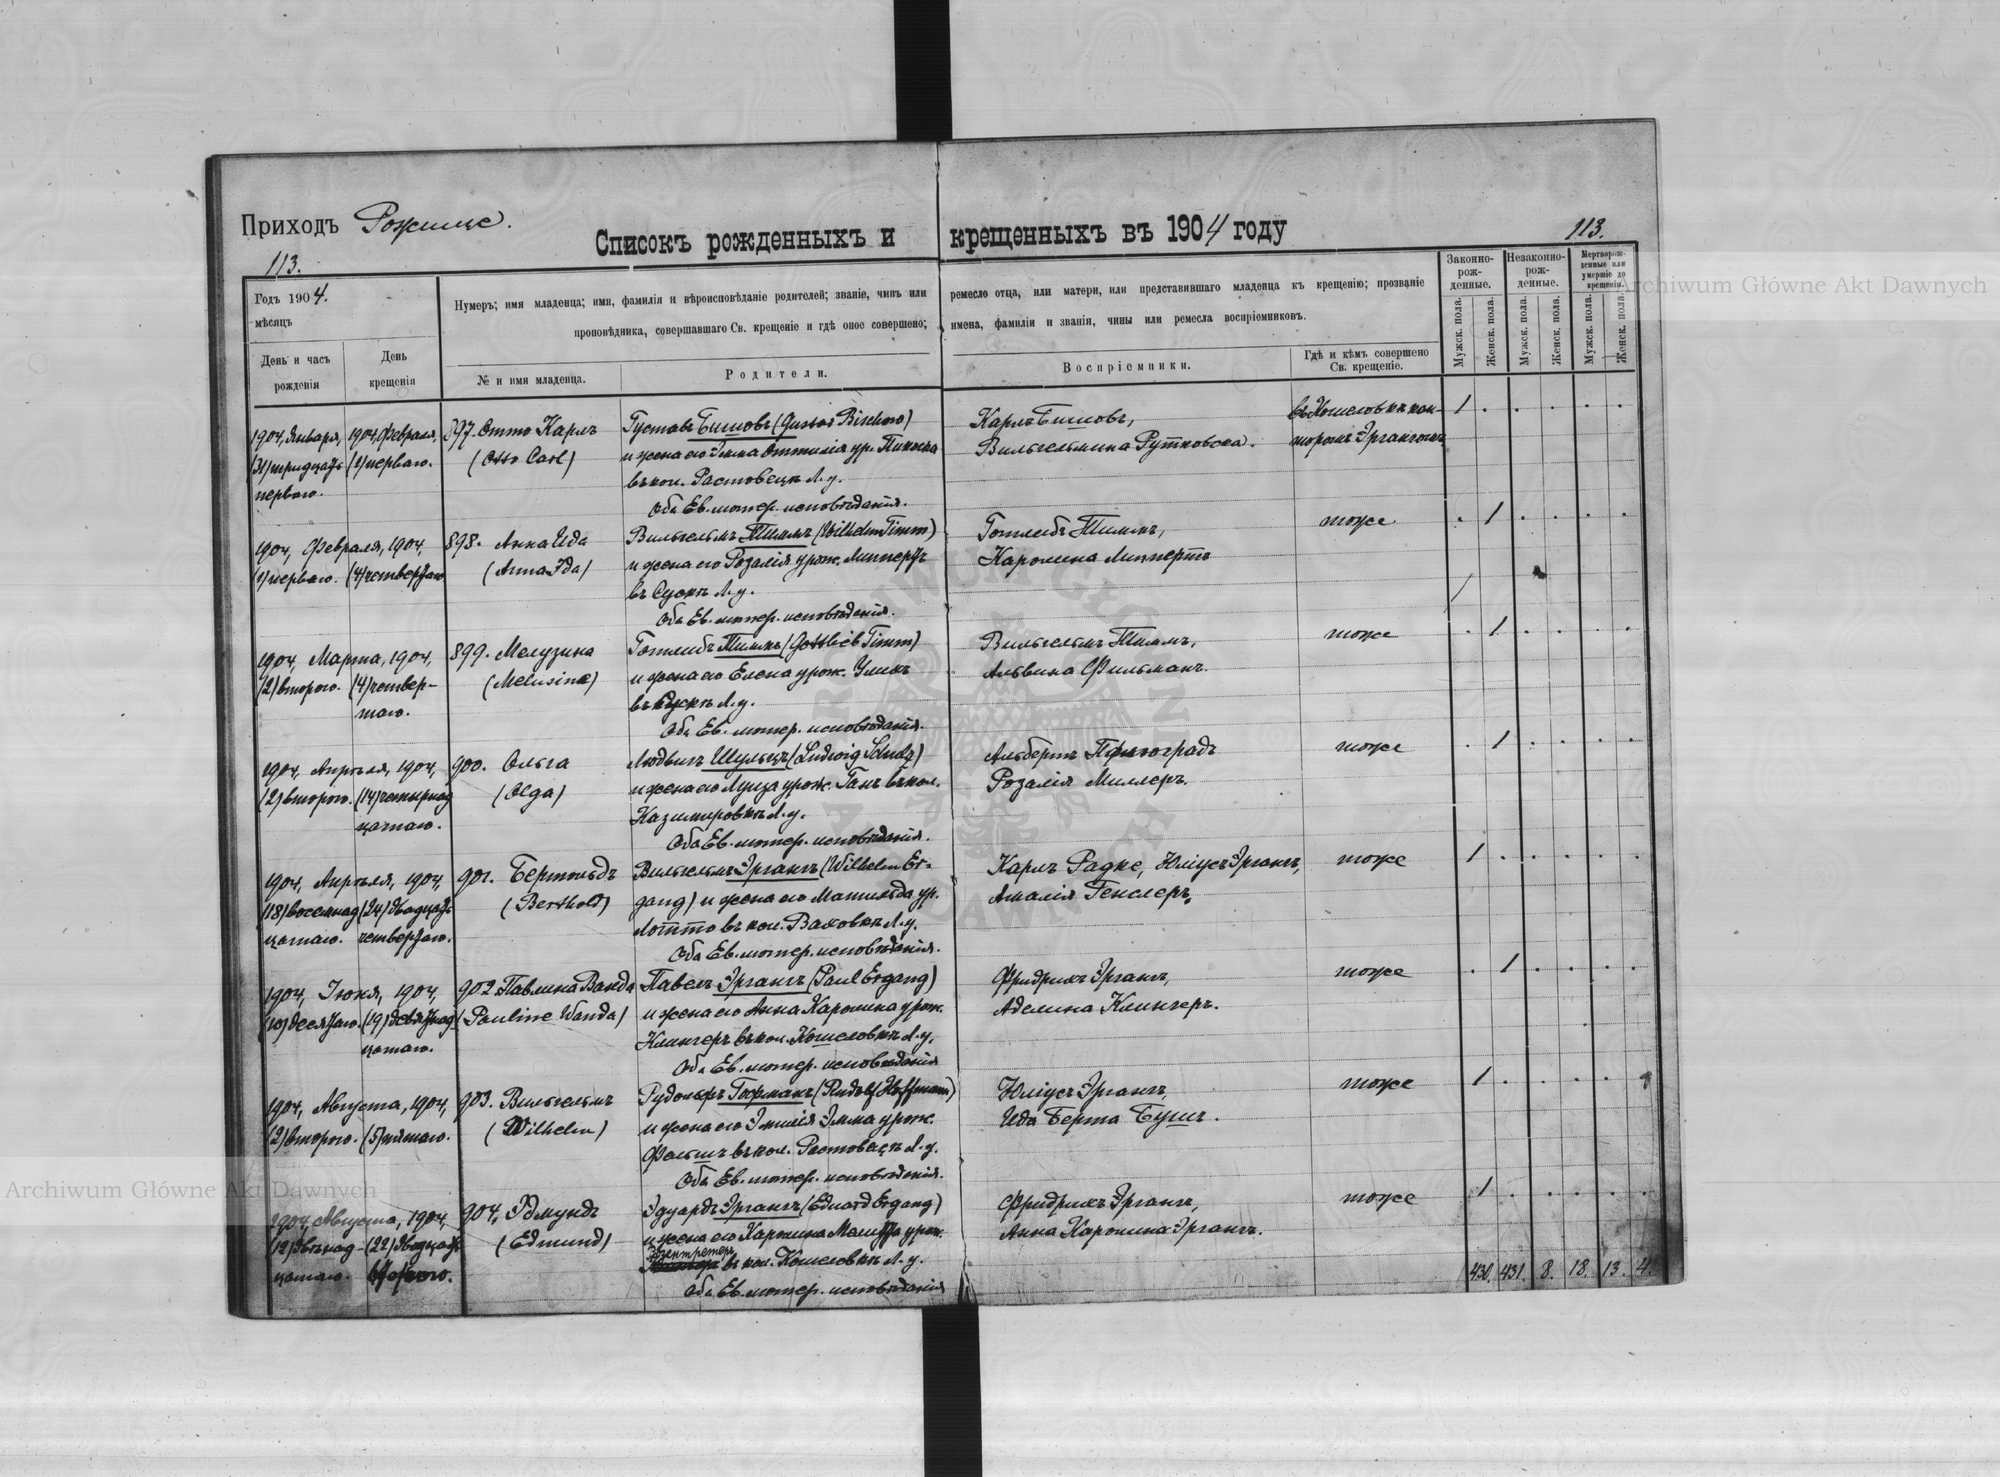 Приходъ Рожище.
Списокъ рожденныхъ и крещенныхъ въ 1904 году
113.
113.
Годъ 1904.
мѣсяцъ
День и часъ рожденія
День крещенія
Нумеръ; имя младенца; имя, фамилія и вѣроисповѣданіе родителей; званіе, чинъ или ремесло отца, или матери, или представившаго младенца къ крещенію; прозваніе
проповѣдника, совершавшаго Св. крещеніе и гдѣ оное совершено; имена, фамиліи и званія, чины или ремесла воспріемниковъ.
№ и имя младенца.
Родители.
Воспріемники.
Гдѣ и кѣмъ совершено Св. крещеніе.
Законно-рож-денные.
Незаконно-рож-денные.
Мертворож-денные или умершіе до крещенія.
Мужск. пола.
Женск. пола.
Мужск. пола.
Женск. пола.
Мужск. пола.
Женск. пола.
1904, Января, 1904, Февраля, 897. Отто Карлъ Густавъ Бишовъ (Gustav Bischow) Карлъ Бишовъ, въ Кошеловкѣ кан- 1
(31) тридцать (1) перваго. (Otto Carl) и жена его Эмма Оттилія ур. Вильгельмина Рутковска. торомъ Эргангомъ
перваго. въ кол. Растовецъ Л. у.
Оба Ев. лютер. исповѣданія.
1904, Февраля, 1904, 898. Анна Ида Вильгельмъ Тиммъ (Wilhelm Timm) Готлибъ Тиммъ, тоже 1
(1) перваго. (4) четвертаго (Anna Ida) и жена его Розалія урож. Липпертъ Каролина Липпертъ
въ Сускъ Л. у.
Оба Ев. лютер. исповѣданія.
1904, Марта, 1904, 899. Мелузина Готлибъ Тиммъ (Gottlieb Timm) Вильгельмъ Тиммъ, тоже 1
(2) второго. (4) четвер- (Melusine) и жена его Елена урож. Альвина Фильманъ.
таго. въ Сускъ Л. у.
Оба Ев. лютер. исповѣданія.
1904, Апрѣля, 1904, 900. Ольга Людвигъ Шульцъ (Ludwig Schulz) Альбертъ тоже 1
(2) второго. (14) четырнад (Olga) и жена его Луиза урож. Ганъ въ кол. Розалія Миллеръ.
цатаго. Казимировкѣ Л. у.
Оба Ев. лютер. исповѣданія.
1904, Апрѣля, 1904, 901. Бертольдъ Вильгельмъ Эргангъ (Wilhelm Er- Карлъ Радке, Юліусъ Эргангъ, тоже 1
(18) восемнад (24) двадцать (Berthold) gang) и жена его Матильда ур. Амалія Генслеръ.
цатаго. четвертаго. Лотто въ кол. Ваховкѣ Л. у.
Оба Ев. лютер. исповѣданія.
1904, Іюня, 1904, 902 Павлина Ванда Павелъ Эргангъ (Paul Ergang) Фридрихъ Эргангъ, тоже 1
(10) десятаго. (19) девятнад (Pauline Wanda) и жена его Анна Каролина урож. Аделина Клингеръ.
цатаго. Клингеръ въ кол. Кошеловкѣ Л. у.
Оба Ев. лютер. исповѣданія
1904, Августа, 1904, 903. Вильгельмъ Рудольфъ Гофманъ (Rudolf Hoffmann) Юліусъ Эргангъ, тоже 1
(2) второго. (5) пятаго. (Wilhelm) и жена его Эмилія Эмма урож. Ида Берта Бушъ.
въ кол. Растовецъ Л. у.
Оба Ев. лютер. исповѣданія.
1904, Августа, 1904, 904. Эдмундъ Эдуардъ Эргангъ (Eduard Ergang) Фридрихъ Эргангъ, тоже 1
(12) двѣнад- (22) двадцать (Edmund) и жена его Каролина урож. Анна Каролина Эргангъ.
цатаго. второго. въ кол. Кошеловкѣ Л. у.
Оба Ев. лютер. исповѣданія
430. 431. 8. 18. 13. 4.
Archiwum Główne Akt Dawnych
Archiwum Główne Akt Dawnych